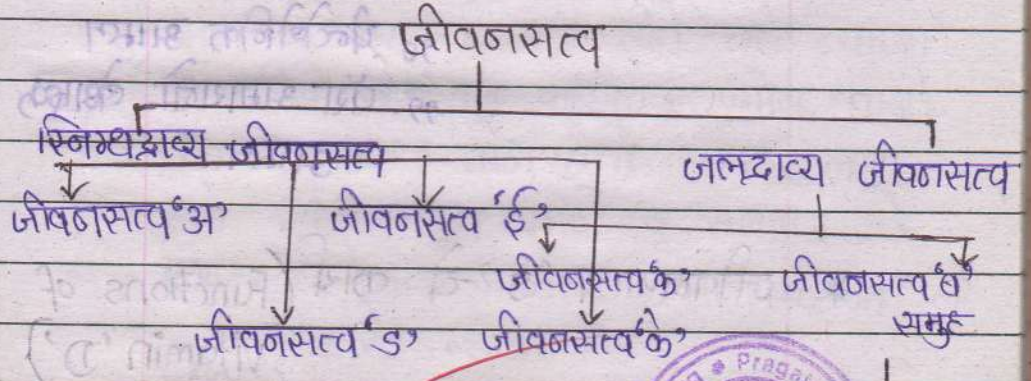 जीवनसत्व
स्निग्धद्राव्य जीवनसत्व
जलद्राव्य जीवनसत्व
जीवनसत्व 'अ'
जीवनसत्व 'ई'
जीवनसत्व 'क'
जीवनसत्व 'ब'
समुह
जीवनसत्व 'ड'
जीवनसत्व 'के'